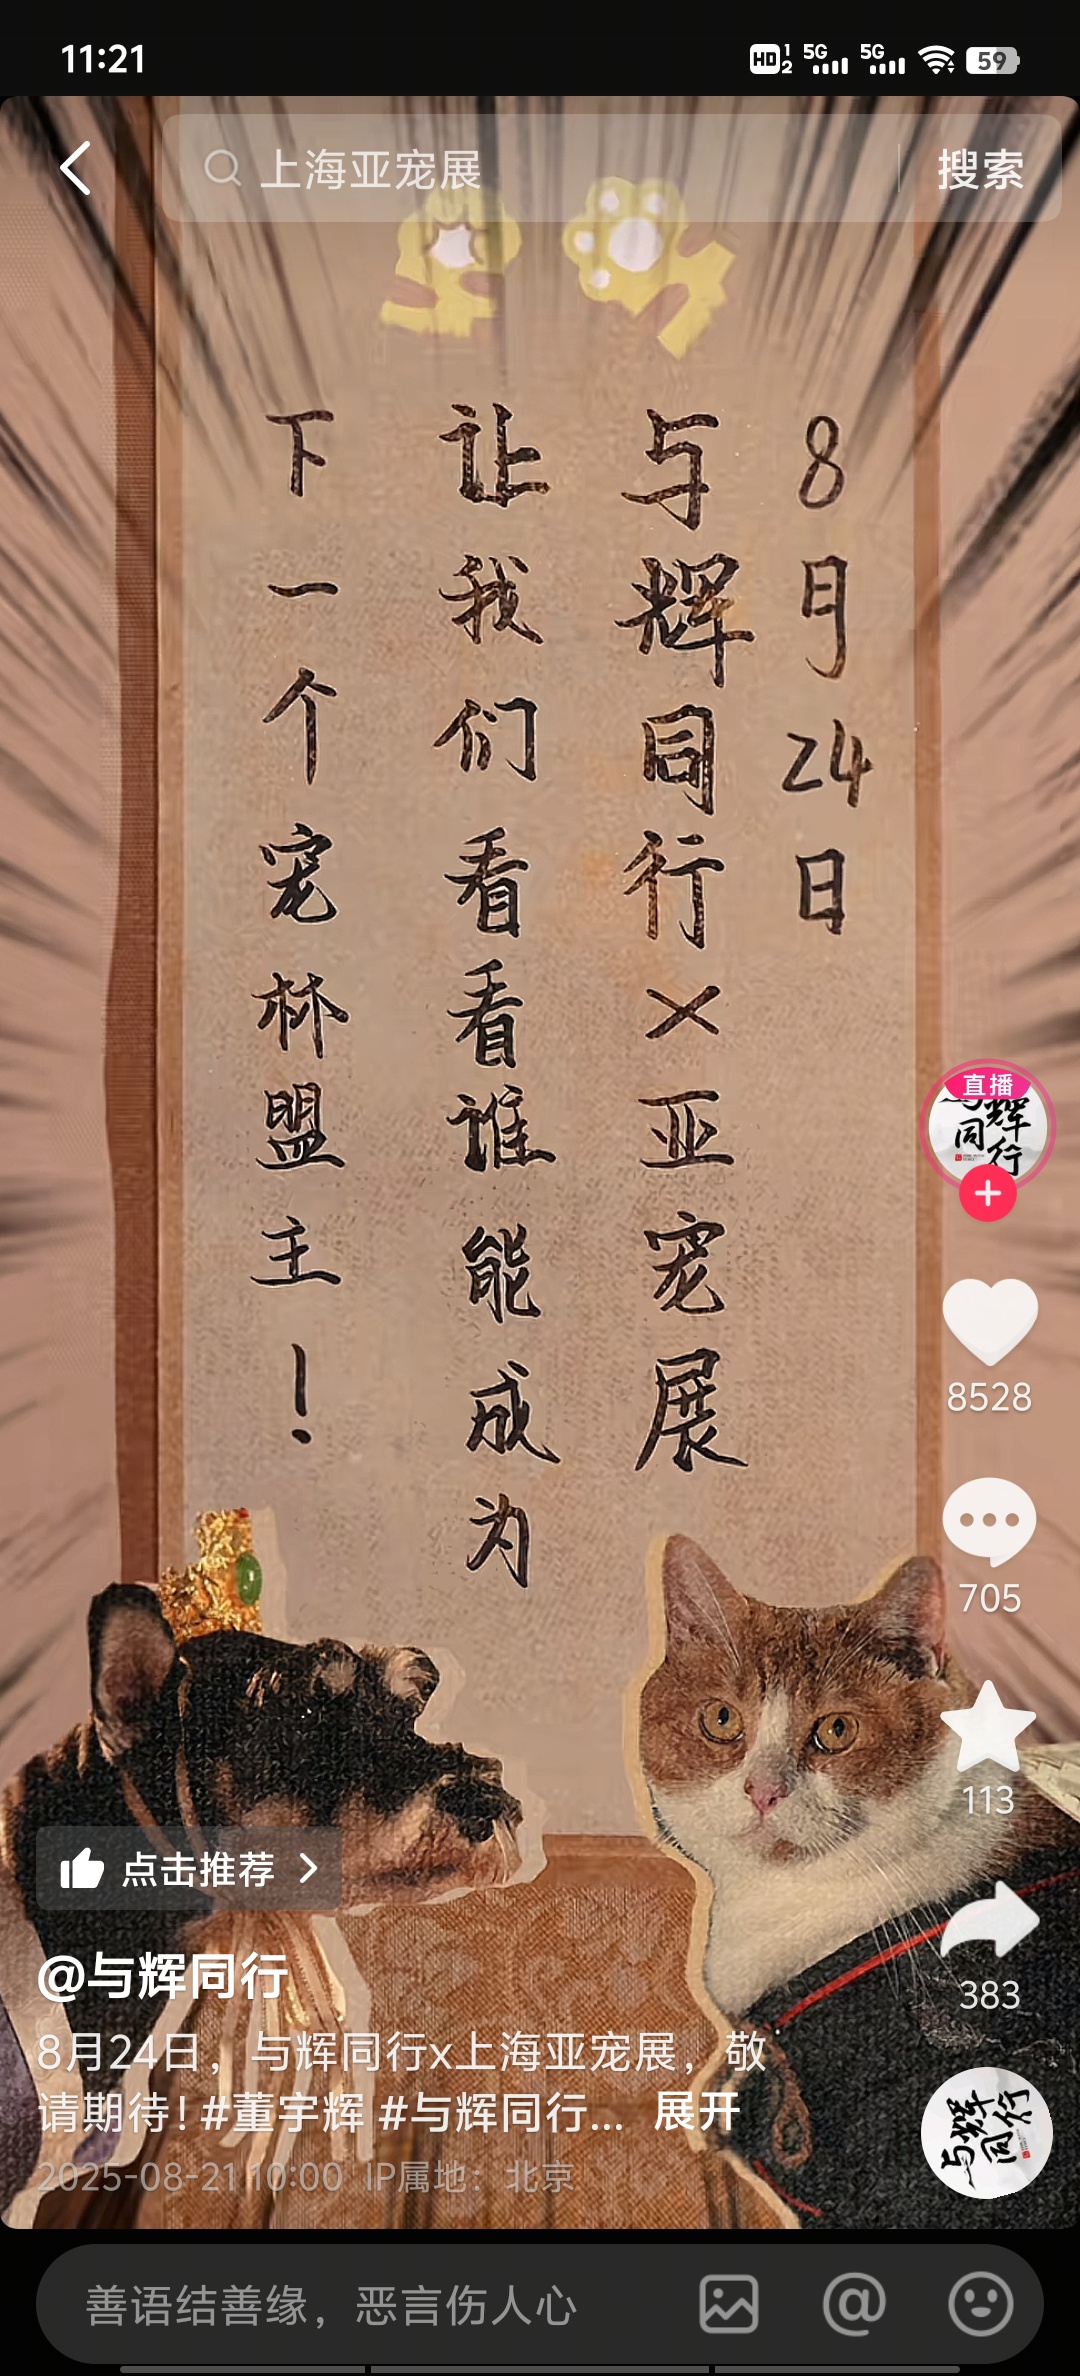 11:21
HD 1 2 5G 5G 59
上海亚宠展
搜索
8月24日
与辉同行×亚宠展
让我们看看谁能成为
下一个宠林盟主！
直播
与辉同行
8528
705
113
383
点击推荐
@与辉同行
8月24日，与辉同行x上海亚宠展，敬
请期待！#董宇辉 #与辉同行... 展开
2025-08-21 10:00 IP属地：北京
与辉同行
善语结善缘，恶言伤人心